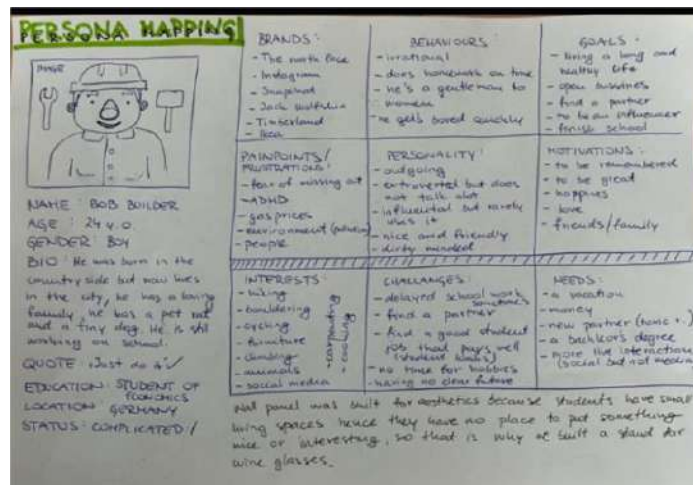 PERSONA MAPPING
IMAGE
NAME : BOB BUILDER
AGE : 24 y.o.
GENDER : BOY
BIO : He was born in the
country side but now lives
in the city, he has a loving
family, he has a pet rat
and a tiny dog. He is still
working on school.
QUOTE : "Just do it"
EDUCATION : STUDENT OF
ECONOMICS
LOCATION : GERMANY
STATUS : COMPLICATED :/
BRANDS :
- The north face
- Instagram
- Snapchat
- Jack
- Timberland
- Ikea
BEHAVIOURS :
- irrational
- does homework on time
- he's a gentleman to
women
- he gets bored quickly
GOALS :
- living a long and
healthy life
- open
- find a partner
- to be an influencer
- finish school
PAINPOINTS/
FRUSTRATIONS :
- fear of missing out
- ADHD
- gas prices
- environment
- people
PERSONALITY :
- outgoing
- extroverted but does
not talk alot
- influential but rarely
uses it
- nice and friendly
- dirty minded
MOTIVATIONS :
- to be remembered
- to be great
- happines
- love
- friends/family
INTERESTS :
- hiking
- bouldering
- cycling
- furniture
- climbing
- animals
- social media
- carpenting
- cooking
CHALLANGES :
- delayed school work
sometimes
- find a partner
- find a good student
job that pays well
- no time for hobbies
- having no clear future
NEEDS :
- a vacation
- money
- new partner
- a bachelor's degree
- more live interactions
(social but not media)
panel was built for aesthetics because students have small
living spaces hence they have no place to put something
nice or interesting, so that is why we built a stand for
wine glasses.